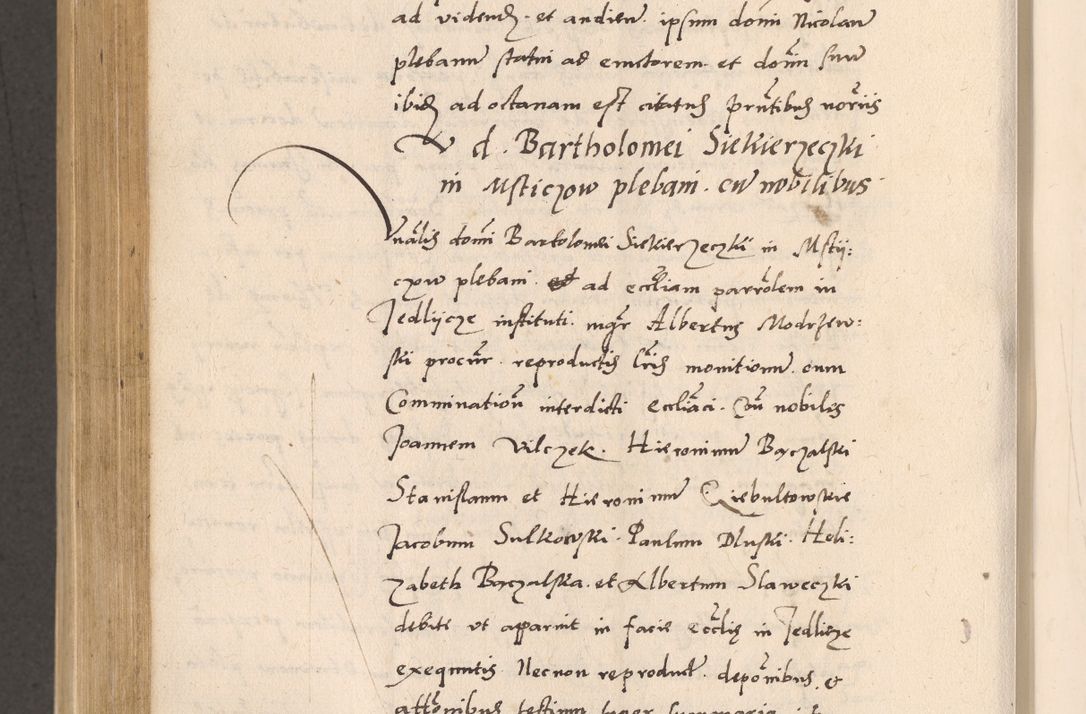 ad videnđ. et audienđ. ipsum domi Nicolaum
plebanum statui ad emctorem. et domin suum
ibiđ ad octauam est citatus pntibus notriis
d. Bartholomei Siekierzeczki
in Msticzow plebani. cum nobilibus
nalis domi Bartolomei Siekierzeczki in Mstij:
czow plebani. ad eccliam parrolem in
Jedlijcze instituti. mgr Albertus Modrzew:
ski procur. reproductis lris monitionum. cum
Comminatiou interdicti eccliaci. Con nobiles
Joannem Vilczek. Hieronimum Baczalski
Stanislaum et Hieronimum Giebultowskie
Jacobum Sulkowski. Paulum Dluski. Heli:
zabeth Baczalska. et Albertum Slaweczki
debite ut apparuit in facie ecclie in Jedlicze
exequutis Necnon reproduct. deponibus. et
attonibus testium super summaria